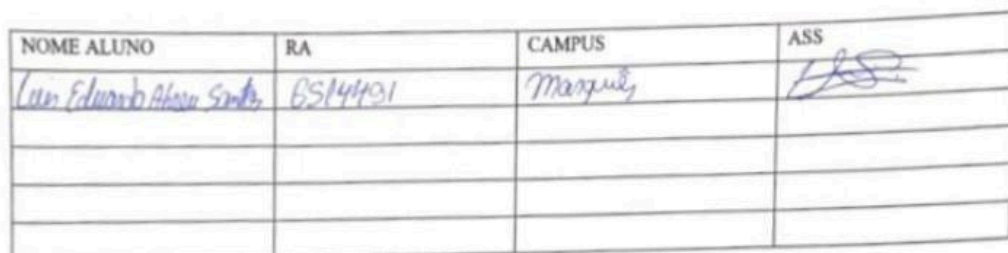 NOME ALUNO RA CAMPUS ASS
Luis Eduardo Abreu Santos 6514491 Marquês